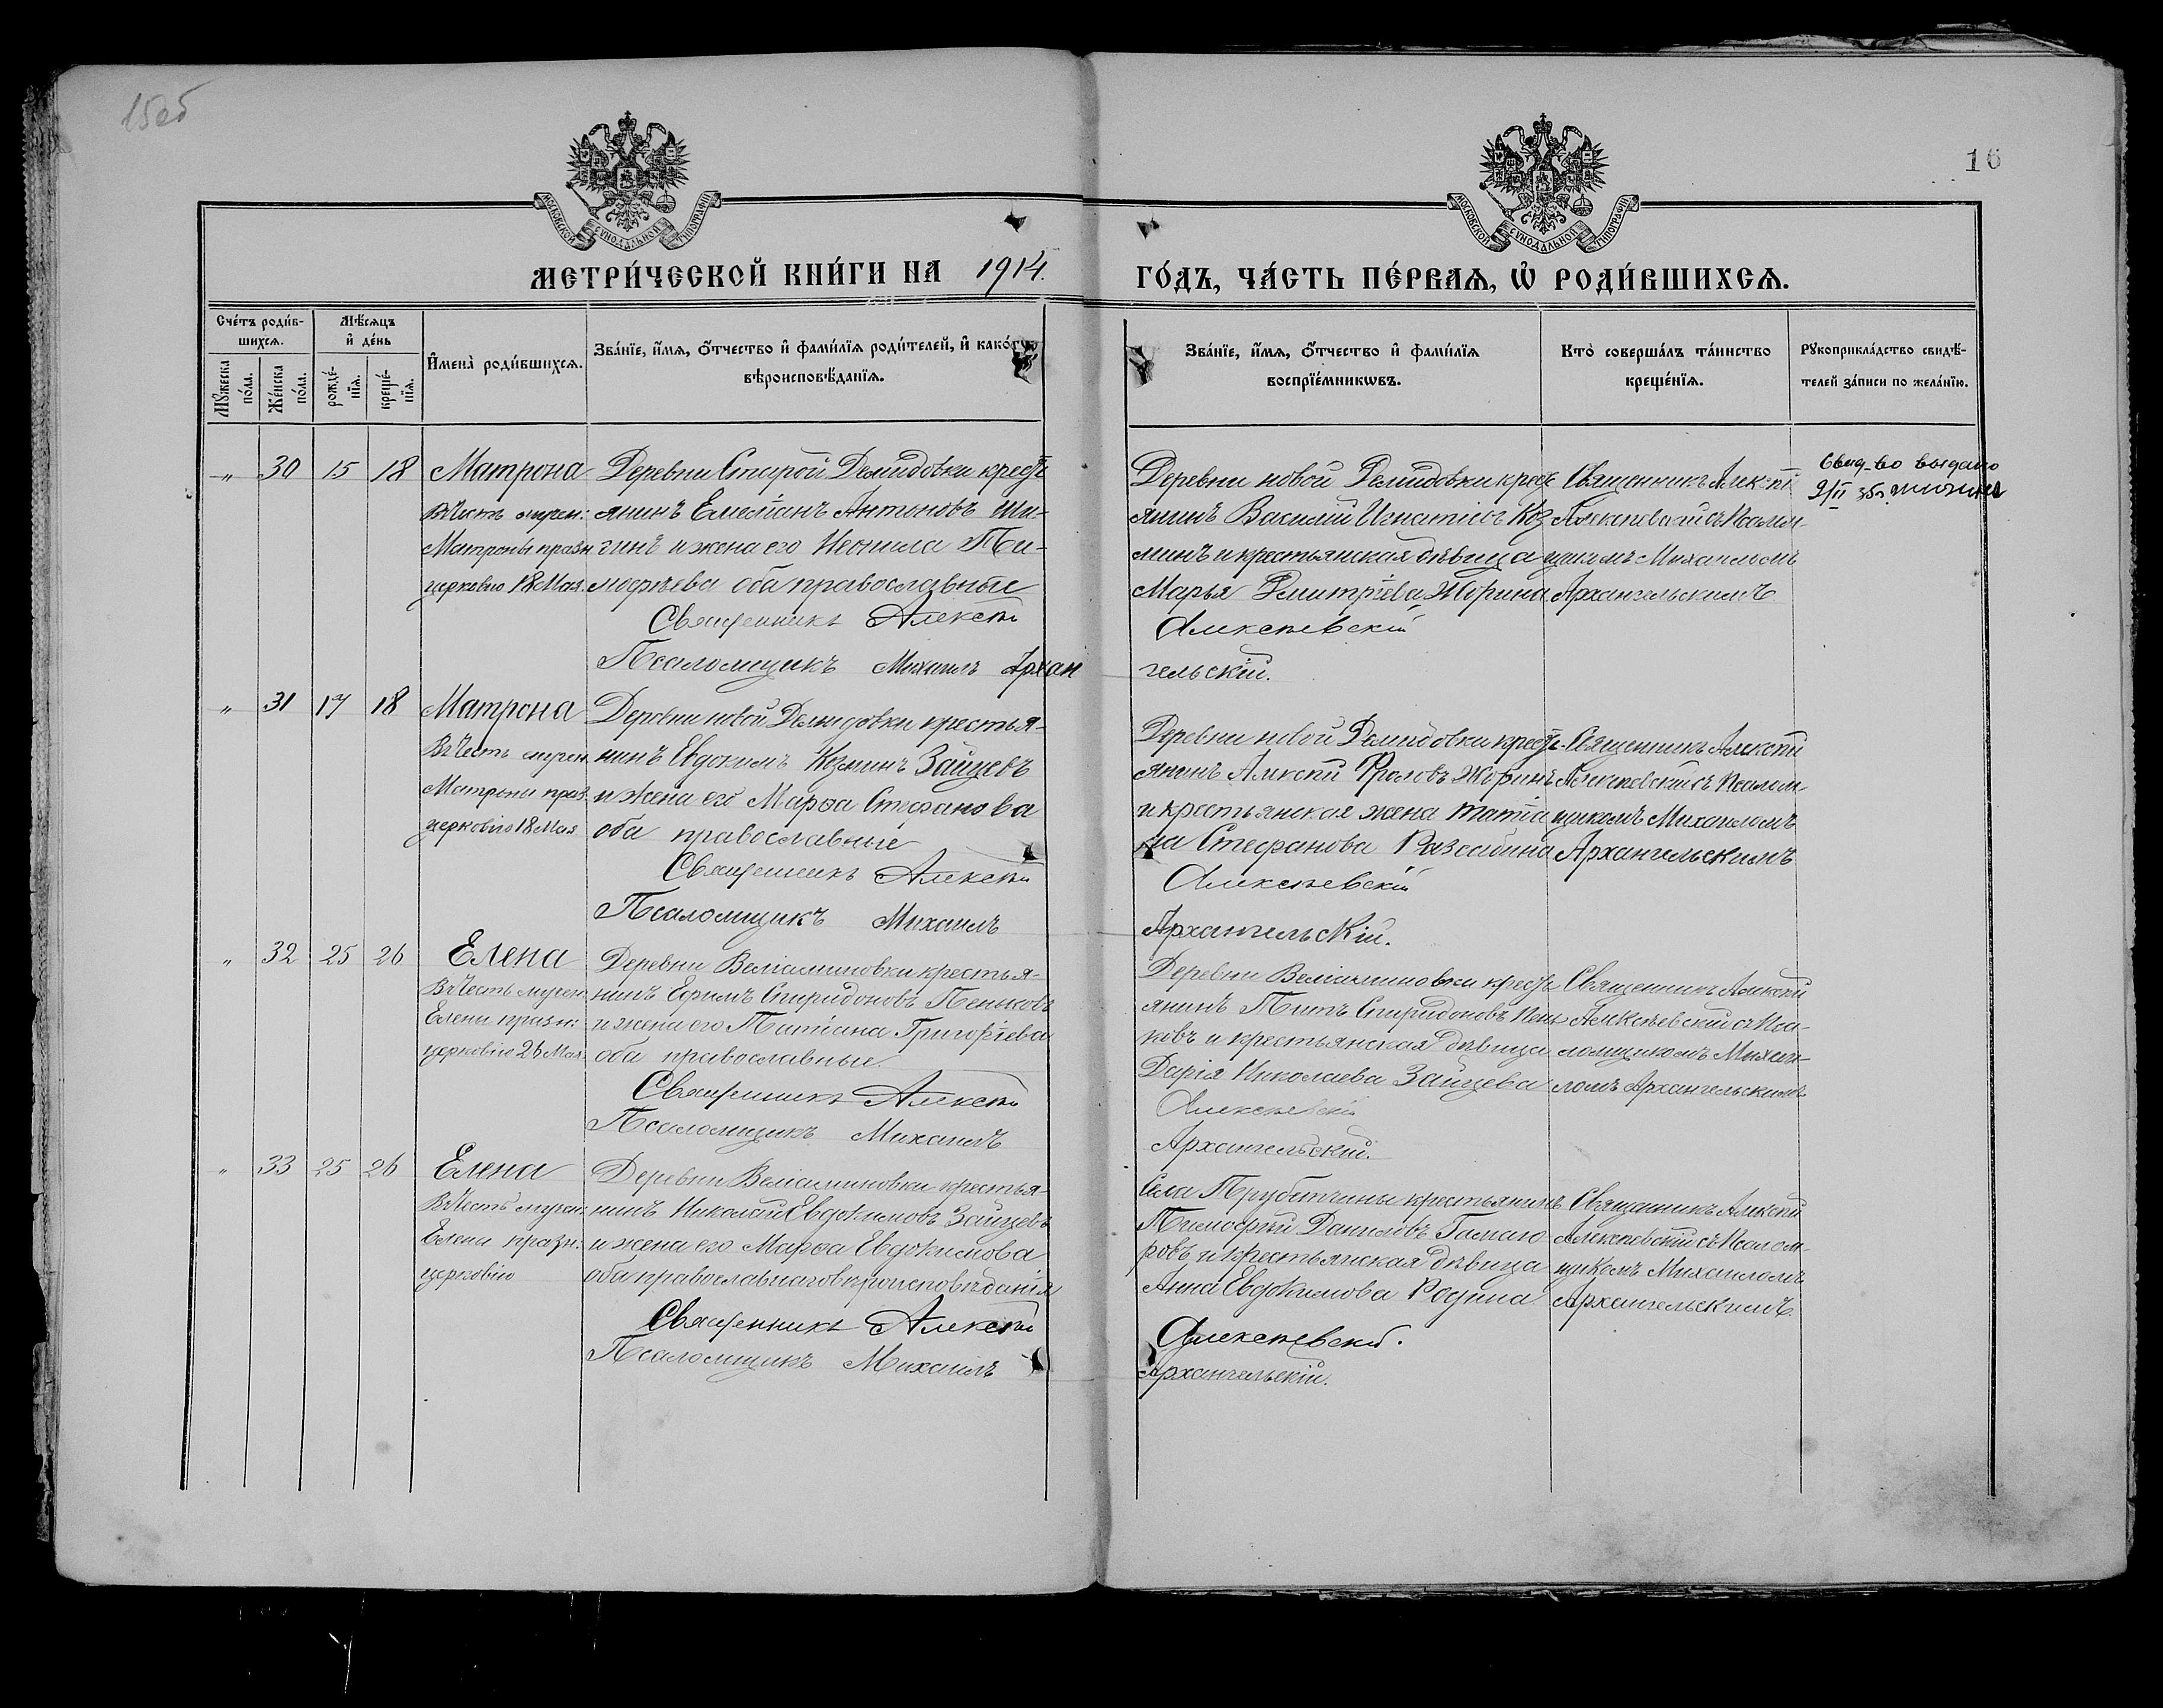 15об
16
МОСКОВСКОЙ СѴНОДАЛЬНОЙ ТИПОГРАФІИ
МОСКОВСКОЙ СѴНОДАЛЬНОЙ ТИПОГРАФІИ
МЕТРИ́ЧЕСКОЙ КНИ́ГИ НА 1914.
ГО́ДЪ, ЧА́СТЬ ПЕ́РВАѦ, Ѡ҆ РОДИ́ВШИХСѦ.
Сче́тъ роди́в-
шихсѧ.
Мꙋ́жеска по́ла.
Же́нска по́ла.
Мѣ́сѧцъ
и҆ де́нь
рожде́-
нїѧ.
креще́-
нїѧ.
И҆мена̀ роди́вшихсѧ.
Зва́нїе, и҆́мѧ, ѻ҆́тчество и҆ фами́лїѧ роди́телей, и҆ како́гѡ
вѣроисповѣ́данїѧ.
Зва́нїе, и҆́мѧ, ѻ҆́тчество и҆ фами́лїѧ
воспрїе́мникѡвъ.
Кто̀ соверша́лъ та́инство
креще́нїѧ.
Рꙋкоприкла́дство свидѣ́-
телей за́писи по жела́нїю.
„ 30 15 18 Матрона
Въ честь мучен:
Матроны празн
церковію 18 Мая.
Деревни Старой Демидовки кресть
янинъ Емеліанъ Антиповъ Ши-
гинъ и жена его Неонила Ти-
мофѣева оба православные
Священникъ Алексѣй
Псаломщикъ Михаилъ Архан
Деревни новой Демидовки кресть
янинъ Василій Игнатіевъ Коз
минъ и крестьянская дѣвица
Марья Димитріева Жорина
Алексѣевскій
гельскій.
Священникъ Алексѣй
Алексѣевскій съ Псалом
щикомъ Михаиломъ
Архангельскимъ
Свид-во выдано
9/II
„ 31 17 18 Матрона
Въ честь мучен
Матроны праз
церковію 18 Мая
Деревни новой Демидовки крестья-
нинъ Евдокимъ Козминъ Зайцевъ
и жена его Марѳа Стефанова
оба православные
Священникъ Алексѣй
Псаломщикъ Михаилъ
Деревни новой Демидовки кресть-
янинъ Алексѣй Фроловъ Жоринъ
и крестьянская жена Татіа
на Стефанова
Алексѣевскій
Архангельскій.
Священникъ Алексѣй
Алексѣевскій съ Псалом
щикомъ Михаиломъ
Архангельскимъ
„ 32 25 26 Елена
Въ честь мучен
Елены празн:
церковію 26 Мая
Деревни Веліаминовки крестья-
нинъ Ефимъ Спиридоновъ Пеньковъ
и жена его Татіана Григоріева
оба православные.
Священникъ Алексѣй
Псаломщикъ Михаилъ
Деревни Веліаминовки кресть
янинъ Титъ Спиридоновъ Пень
ковъ и крестьянская дѣвица
Дарія Николаева Зайцева
Алексѣевскій
Архангельскій.
Священникъ Алексѣй
Алексѣевскій съ Пса-
ломщикомъ Михаи-
ломъ Архангельскимъ
„ 33 25 26 Елена
Въ честь мучен
Елены празн:
церковію
Деревни Веліаминовки крестья-
нинъ Николай Евдокимовъ Зайцевъ
и жена его Марѳа Евдокимова
оба православнаго вѣроисповѣданія
Священникъ Алексѣй
Псаломщикъ Михаилъ
Села Трубетчины крестьянинъ
Тимофей Даниловъ Гамаю
ровъ и крестьянская дѣвица
Анна Евдокимова Родина
Алексѣевскій.
Архангельскій.
Священникъ Алексѣй
Алексѣевскій съ Псалом-
щикомъ Михаиломъ
Архангельскимъ